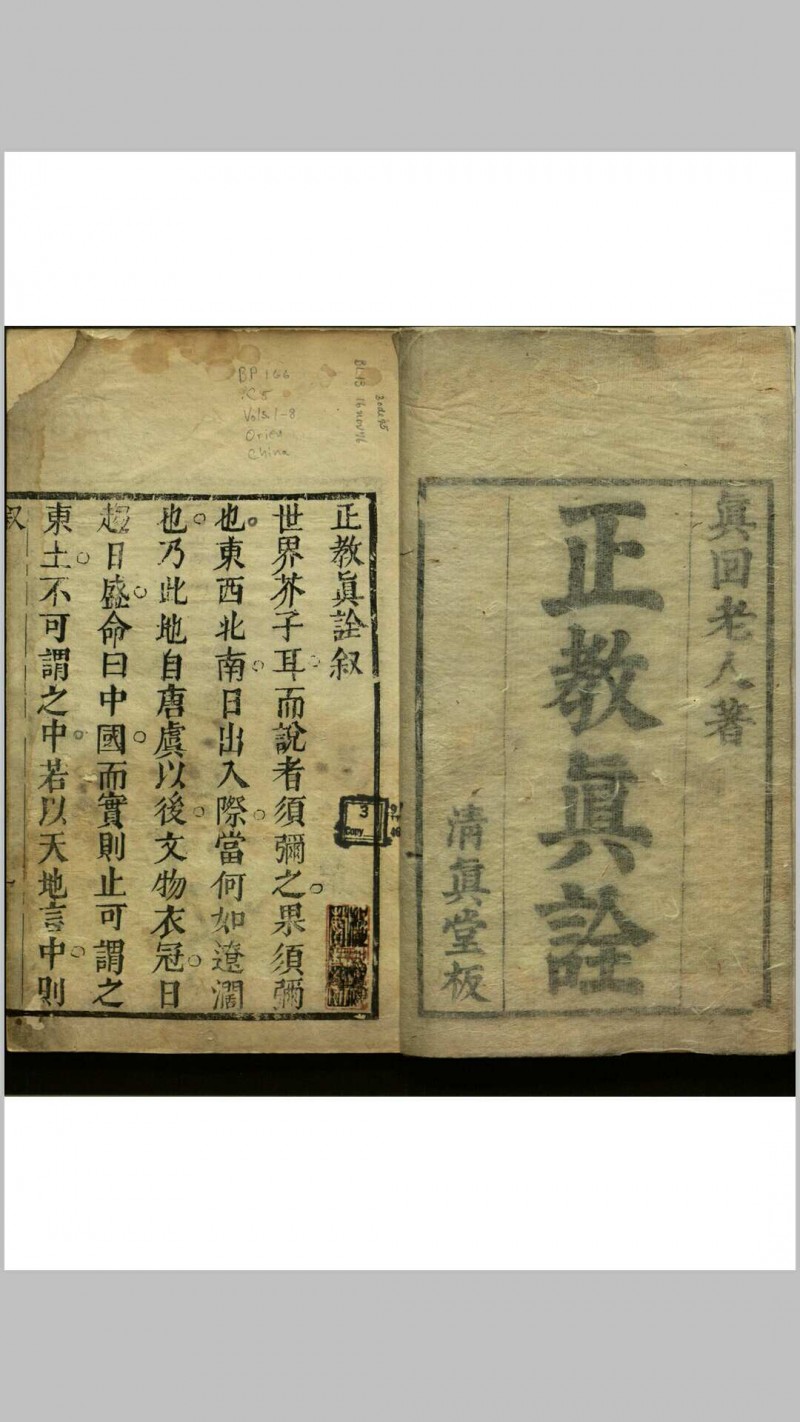 眞回老人著
正教眞詮
清眞堂板
BP166
.C5
Vols 1-8
Orien
China
正教眞詮叙
世界芥子耳而說者須彌之果須彌
也東西北南日出入際當何如遼濶
也乃此地自唐虞以後文物衣冠日
趨日盛命曰中國而實則止可謂之
東土不可謂之中若以天地言中則
叙
3
Copy